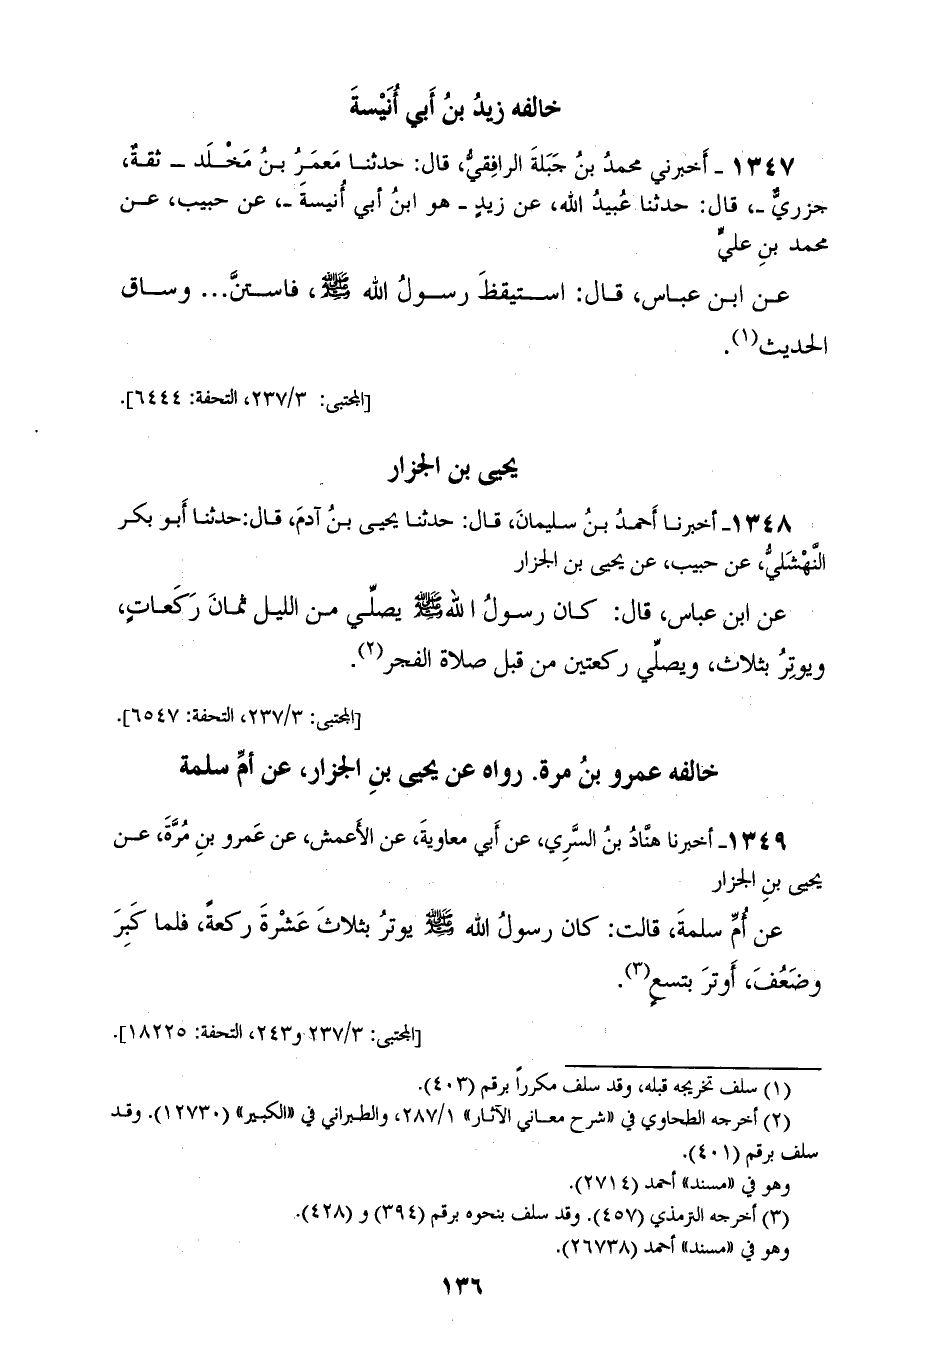 خالفه زيدُ بنُ أَبي أُنَيْسةَ
١٣٤٧ ـ أَخبرني محمدُ بنُ جَبَلةَ الرافِقيُّ، قال: حدثنا مَعمَرُ بنُ مَخْلَد ــ ثقةٌ،
جزريٌّ ـ، قال: حدثنا عُبيدُ الله، عن زيدٍ ـ هو ابنُ أبي أُنيسةَ ـ، عن حبيب، عن
محمد بنِ عليٍّ
عن ابن عباس، قال: استيقظَ رسولُ الله ﷺ، فاستنَّ... وساق
الحديث(١).
[المجتبى: ٢٣٧/٣، التحفة: ٦٤٤٤].
يحيى بن الجزار
١٣٤٨ـ أخبرنا أَحمدُ بنُ سليمانَ، قال: حدثنا يحيى بنُ آدمَ، قال:حدثنا أَبو بكر
النَّهْشَليُّ، عن حبيب، عن يحيى بن الجزار
عن ابن عباس، قال: كان رسولُ الله ﷺ يصلِّي من الليل ثمانَ رَكَعاتٍ،
ويوتِرُ بثلاث، ويصلِّي ركعتين من قبل صلاة الفجر(٢).
[المجتبى: ٢٣٧/٣، التحفة: ٦٥٤٧].
خالفه عمرو بنُ مرة. رواه عن يحيى بنِ الجزار، عن أمِّ سلمة
١٣٤٩ـ أخبرنا هنَّادُ بنُ السَّرِي، عن أَبي معاويةَ، عن الأَعمش، عن عَمرو بنِ مُرَّةَ، عن
يحيى بنِ الجزار
عن أُمِّ سلمةَ، قالت: كان رسولُ الله ﷺ يوترُ بثلاثَ عَشْرةَ ركعةً، فلما كَبِرَ
وضَعُفَ، أَوترَ بتسعٍ(٣).
[المجتبى: ٢٣٧/٣ و٢٤٣، التحفة: ١٨٢٢٥].
(١) سلف تخريجه قبله، وقد سلف مكرراً برقم (٤٠٣).
(٢) أخرجه الطحاوي في «شرح معاني الآثار» ٢٨٧/١، والطبراني في «الكبير» (١٢٧٣٠). وقد
سلف برقم (٤٠١).
وهو في «مسند» أحمد (٢٧١٤).
(٣) أخرجه الترمذي (٤٥٧). وقد سلف بنحوه برقم (٣٩٤) و (٤٢٨).
وهو في «مسند» أحمد (٢٦٧٣٨).
١٣٦